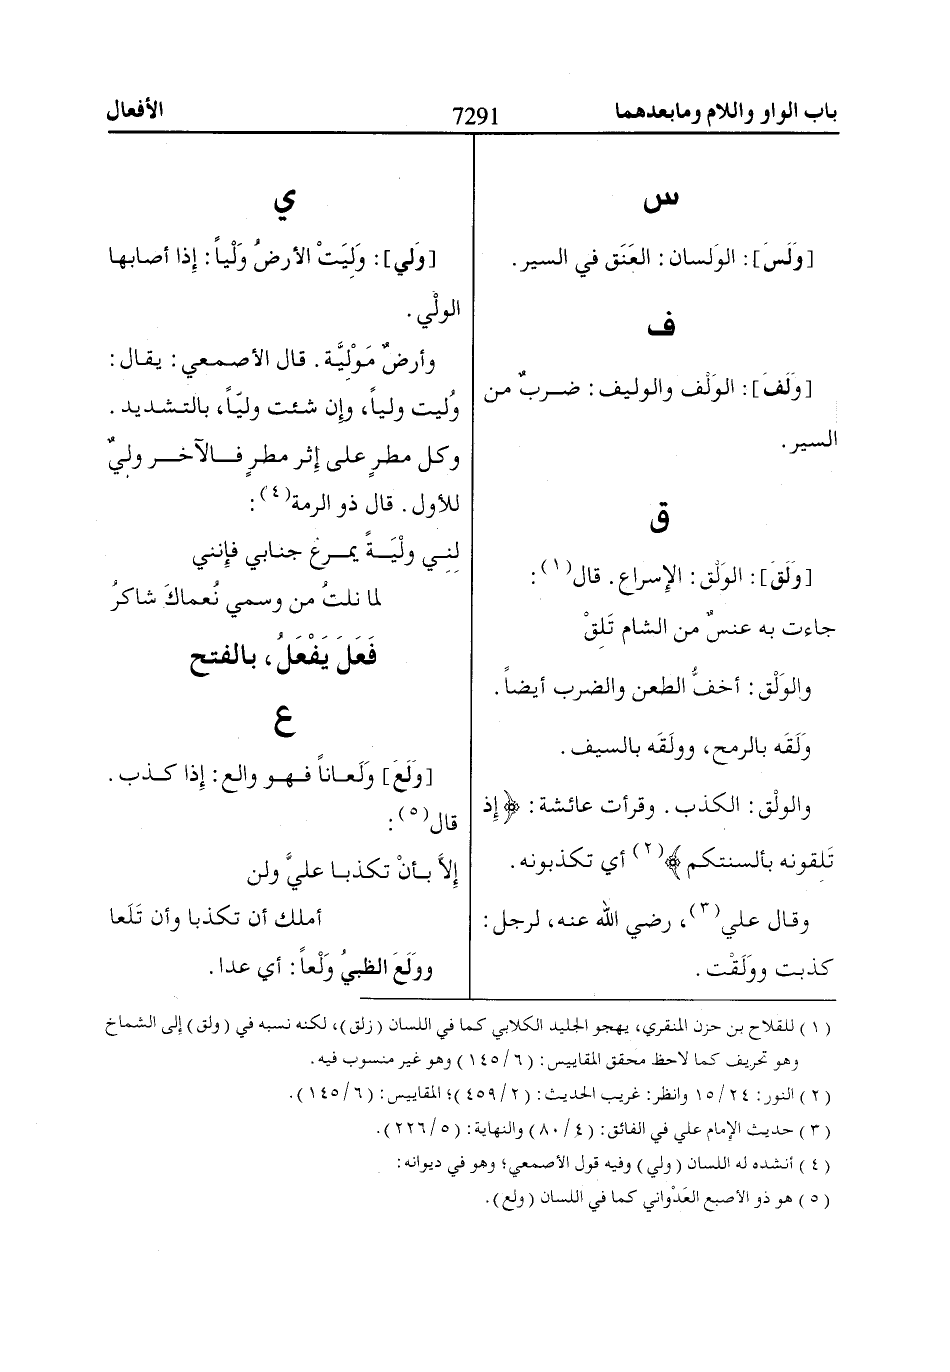 باب الواو واللام ومابعدهما
7291
الأفعال
س
[وَلَسَ]: الوَلسان: العَنَق في السير.
ف
[وَلَفَ]: الوَلْف والوليف: ضربٌ من
السير.
ق
[وَلَقَ]: الوَلْق: الإسراع. قال(١):
جاءت به عنسٌ من الشام تَلِقْ
والوَلْق: أخفُّ الطعن والضرب أيضاً.
وَلَقَه بالرمح، وولَقَه بالسيف.
والولْق: الكذب. وقرأت عائشة: ﴿إِذ
تَلِقونه بألسنتكم﴾(٢) أي تكذبونه.
وقال علي(٣)، رضي الله عنه، لرجل:
كذبت وولَقْت.
ي
[وَلي]: وَلِيَتْ الأرضُ وَلْياً: إذا أصابها
الولْي.
وأرضٌ مَوْليَّة. قال الأصمعي: يقال:
وُليت ولياً، وإن شئت وليّاً، بالتشديد.
وكل مطرٍ على إثر مطرٍ فالآخر وليٌ
للأول. قال ذو الرمة(٤):
لِنِي ولْيَةً يمرع جنابي فإنني
لما نلتُ من وسمي نُعماكَ شاكرُ
فَعَلَ يَفْعَلُ، بالفتح
ع
[وَلَعَ] ولَعاناً فهو والع: إذا كذب.
قال(٥):
إلاَّ بأنْ تكذبا عليَّ ولن
أملك أن تكذبا وأن تَلَعا
وولَعَ الظبيُ ولْعاً: أي عدا.
(١) للقلاح بن حزن المنقري، يهجو الجليد الكلابي كما في اللسان (زلق)، لكنه نسبه في (ولق) إلى الشماخ
وهو تحريف كما لاحظ محقق المقاييس: (٦/١٤٥) وهو غير منسوب فيه.
(٢) النور: ٢٤/١٥ وانظر: غريب الحديث: (٢/٤٥٩)؛ المقاييس: (٦/١٤٥).
(٣) حديث الإمام علي في الفائق: (٤/٨٠) والنهاية: (٥/٢٢٦).
(٤) أنشده له اللسان (ولي) وفيه قول الأصمعي؛ وهو في ديوانه:
(٥) هو ذو الأصبع العَدْواني كما في اللسان (ولع).